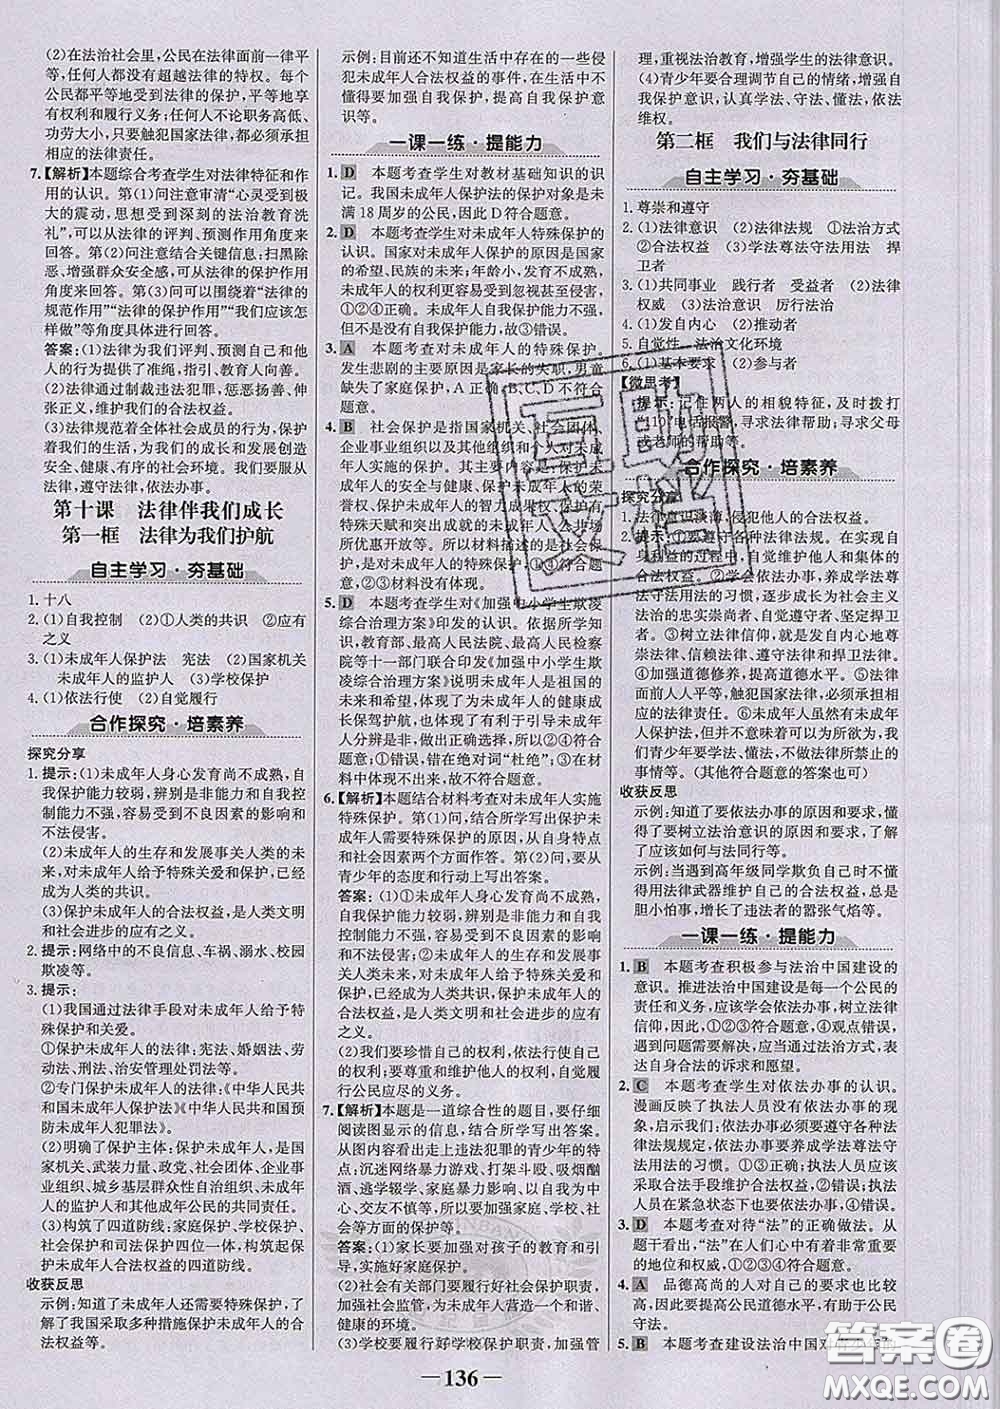 (2)在法治社会里,公民在法律面前一律平
等,任何人都没有超越法律的特权。每个
公民都平等地受到法律的保护,平等地享
有权利和履行义务;任何人不论职务高低、
功劳大小,只要触犯国家法律,都必须承担
相应的法律责任。
7.【解析】本题综合考查学生对法律特征和作
用的认识。第(1)问注意审清“心灵受到极
大的震动,思想受到深刻的法治教育洗
礼”,可以从法律的评判、预测作用角度来
回答。第(2)问注意结合关键信息;扫黑除
恶、增强群众安全感,可从法律的保护作用
角度来回答。第(3)问可以围绕着“法律的
规范作用”“法律的保护作用”“我们应该
怎样做”等角度具体进行回答。
答案:(1)法律为我们评判、预测自己和他
人的行为提供了准绳,指引、教育人向善。
(2)法律通过制裁违法犯罪,惩恶扬善、伸
张正义,维护我们的合法权益。
(3)法律规范着全体社会成员的行为,保护
着我们的生活,为我们的成长和发展创造
安全、健康、有序的社会环境。我们要服从
法律,遵守法律,依法办事。
第十课 法律伴我们成长
第一框 法律为我们护航
自主学习·夯基础
1.十八
2.(1)自我控制 (2)①人类的共识 ②应有
之义
3.(1)未成年人保护法 宪法 (2)国家机关
未成年人的监护人 (3)学校保护
4.(1)依法行使 (2)自觉履行
合作探究·培素养
探究分享
1.提示:(1)未成年人身心发育尚不成熟,自
我保护能力较弱,辨别是非能力和自我控
制能力不强,容易受到不良因素的影响和
不法侵害。
(2)未成年人的生存和发展事关人类的未
来,对未成年人给予特殊关爱和保护,已经
成为人类的共识。
(3)保护未成年人的合法权益,是人类文明
和社会进步的应有之义。
2.提示:网络中的不良信息、车祸、溺水、校园
欺凌等。
3.提示:
(1)我国通过法律手段对未成年人给予特
殊保护和关爱。
①保护未成年人的法律:宪法、婚姻法、劳
动法、刑法、治安管理处罚法等。
②专门保护未成年人的法律:《中华人民共
和国未成年人保护法》《中华人民共和国预
防未成年人犯罪法》。
(2)明确了保护主体:保护未成年人,是国
家机关、武装力量、政党、社会团体、企业事
业组织、城乡基层群众性自治组织、未成年
人的监护人和其他成年公民的共同责任。
(3)构筑了四道防线:家庭保护、学校保护、
社会保护和司法保护四位一体,构筑起保
护未成年人合法权益的四道防线。
收获反思
示例:知道了未成年人还需要特殊保护,了
解了我国采取多种措施保护未成年人的合
法权益等。
示例:目前还不知道生活中存在的一些侵
犯未成年人合法权益的事件,在生活中不
懂得要加强自我保护,提高自我保护意
识等。
一课一练·提能力
1.D 本题考查学生对教材基础知识的识
记。我国未成年人保护法的保护对象是未
满18周岁的公民,因此D符合题意。
2.D 本题考查学生对未成年人特殊保护的
认识。国家对未成年人的保护的原因是国家
的希望、民族的未来;年龄小,发育不成熟,
未成年人的权利更容易受到忽视甚至侵害,
①②④正确。未成年人自我保护能力不强,
但不是没有自我保护能力,故③错误。
3.A 本题考查对未成年人的特殊保护。
发生悲剧的主要原因是家长的失职,男童
缺失了家庭保护,A正确;B、C、D不符合
题意。
4.B 社会保护是指国家机关、社会团体、
企业事业组织以及其他社会组织和个人对
未成年人实施的保护。
对未成年人的荣
誉权、
特殊天赋和突出成就的未成年人的保护,公共场
所优惠开放等,属于社会保护,不是家庭保
护,是对未成年人的社会保护,①④符合题
意,②③材料没有体现。
5.D 本题考查学生对《加强中小学生欺凌
综合治理方案》印发的认识。依据所学知
识,教育部、最高人民法院、最高人民检察
院等十一部门联合印发《加强中小学生欺
凌综合治理方案》说明未成年人是祖国的
未来和民族的希望,为未成年人的健康成
长保驾护航,有利于引导未成年人努力成
为人生的强者,所以①②④符合题意;在
材料中,③错误,错在绝对词“杜绝”;故D
符合题意。
6.【解析】本题结合材料考查对未成年人实施
特殊保护。第(1)问,结合所学写出保护未
成年人需要特殊保护的原因,从自身特点
和社会因素两个方面作答。第(2)问,要从
青少年的态度和行动上写出答案。
答案:(1)①未成年人身心发育尚不成熟,
自我保护能力较弱,辨别是非能力和自我
控制能力不强,容易受到不良因素的影响
和不法侵害。②未成年人的生存和发展事
关人类的未来,对未成年人给予特殊关爱和
保护,已经成为人类的共识。③保护未成年人的
合法权益,是人类文明和社会进步的应有
之义。
(2)我们要珍惜自己的权利,依法行使自己
的权利,尊重和维护他人的权利,自觉履行
公民应尽的义务。
7.【解析】本题是一道综合性的题目,要仔细
阅读图显示的信息,结合所学写出答案。
从图内容看走上违法犯罪的青少年的特
点:沉迷网络暴力游戏、打架斗殴、吸烟酗
酒、逃学辍学、家庭暴力影响、以自我为中
心、交友不慎等,所以要加强家庭、学校、社
会等方面的保护等。
答案:(1)家长要加强对孩子的教育和引
导,实施好家庭保护。
(2)社会有关部门要履行好社会保护职责,
加强社会监管,为未成年人营造一个和谐、
健康的环境。
(3)学校要履行好学校保护职责,加强管
理,重视法治教育,增强学生的法律意识。
(4)青少年要合理调节自己的情绪,增强自
我保护意识,认真学法、守法、懂法,依法
维权。
第二框 我们与法律同行
自主学习·夯基础
1.尊崇和遵守
2.(1)法律意识 (2)法律法规 ①法治方式
②合法权益 (3)学法尊法守法用法 捍
卫者
3.(1)共同事业 践行者 受益者 (2)法律
权威 (3)法治意识 厉行法治
4.(1)发自内心 (2)推动者
5.自觉性 法治文化环境
6.(1)基本要求 (2)参与者
【微思考】
提示:记住两人的相貌特征,及时拨打
110电话报警,寻求法律帮助;寻求父母
或老师的帮助等。
合作探究·培素养
探究分享
1.法律意识淡薄,侵犯他人的合法权益。
2.提示:①遵守各种法律法规。在实现自
身权益的过程中,自觉维护他人和集体的
合法权益。②遇事依法办事,养成学法尊法
守法用法的习惯,逐步成长为社会主义法
治的忠实崇尚者、自觉遵守者、坚定捍卫者。
③要树立法律信仰,就是发自内心地尊
崇法律、信赖法律、遵守法律和捍卫法律。
④加强道德修养,提高道德水平。⑤法律
面前人人平等,触犯国家法律,都要承担
法律责任。⑥未成年人虽然有未成年人保
护,但并不意味着可以为所欲为,我
们青少年要学法、懂法,不做法律所禁止的
事情等。(其他符合题意的答案也可)
收获反思
示例:知道了要依法办事的原因和要求,
懂得了要树立法治意识的原因和要求,了解
了应该如何与法同行等。
示例:当遇到高年级同学欺负自己时不懂
得用法律武器维护自己的合法权益,总是
胆小怕事,增长了违法者的嚣张气焰等。
一课一练·提能力
1.B 本题考查积极参与法治中国建设的
意识。推进法治中国建设是每一个公民的
责任和义务,应该学会依法办事,树立法律
信仰,因此,①②③符合题意,④观点错误,
遇到问题需要解决,应通过法治方式,表
达自身合法的诉求和愿望。
2.C 本题考查学生对依法办事的认识。
漫画反映了执法人员没有依法办事的现
象,启示我们依法办事必须要遵守各种法
律法规规定,依法办事要养成学法尊法守
法用法的习惯。①③正确;执法人员应该
采取合法手段维护合法权益,②错误;执法
人员在紧急状态下也要依法,④错误。
3.D 本题考查对待“法”的正确做法。从
题干看出,“法”在人们心中有着至关重要
的地位和权威,①②③正确,④错误。
4.A 品德高尚的人对自己的要求也比较
高,因此要提高公民道德水平,有助于公民
守法。
5.B 本题考查建设法治中国
— 136 —
互助
文档
答案圈
MXQE.COM